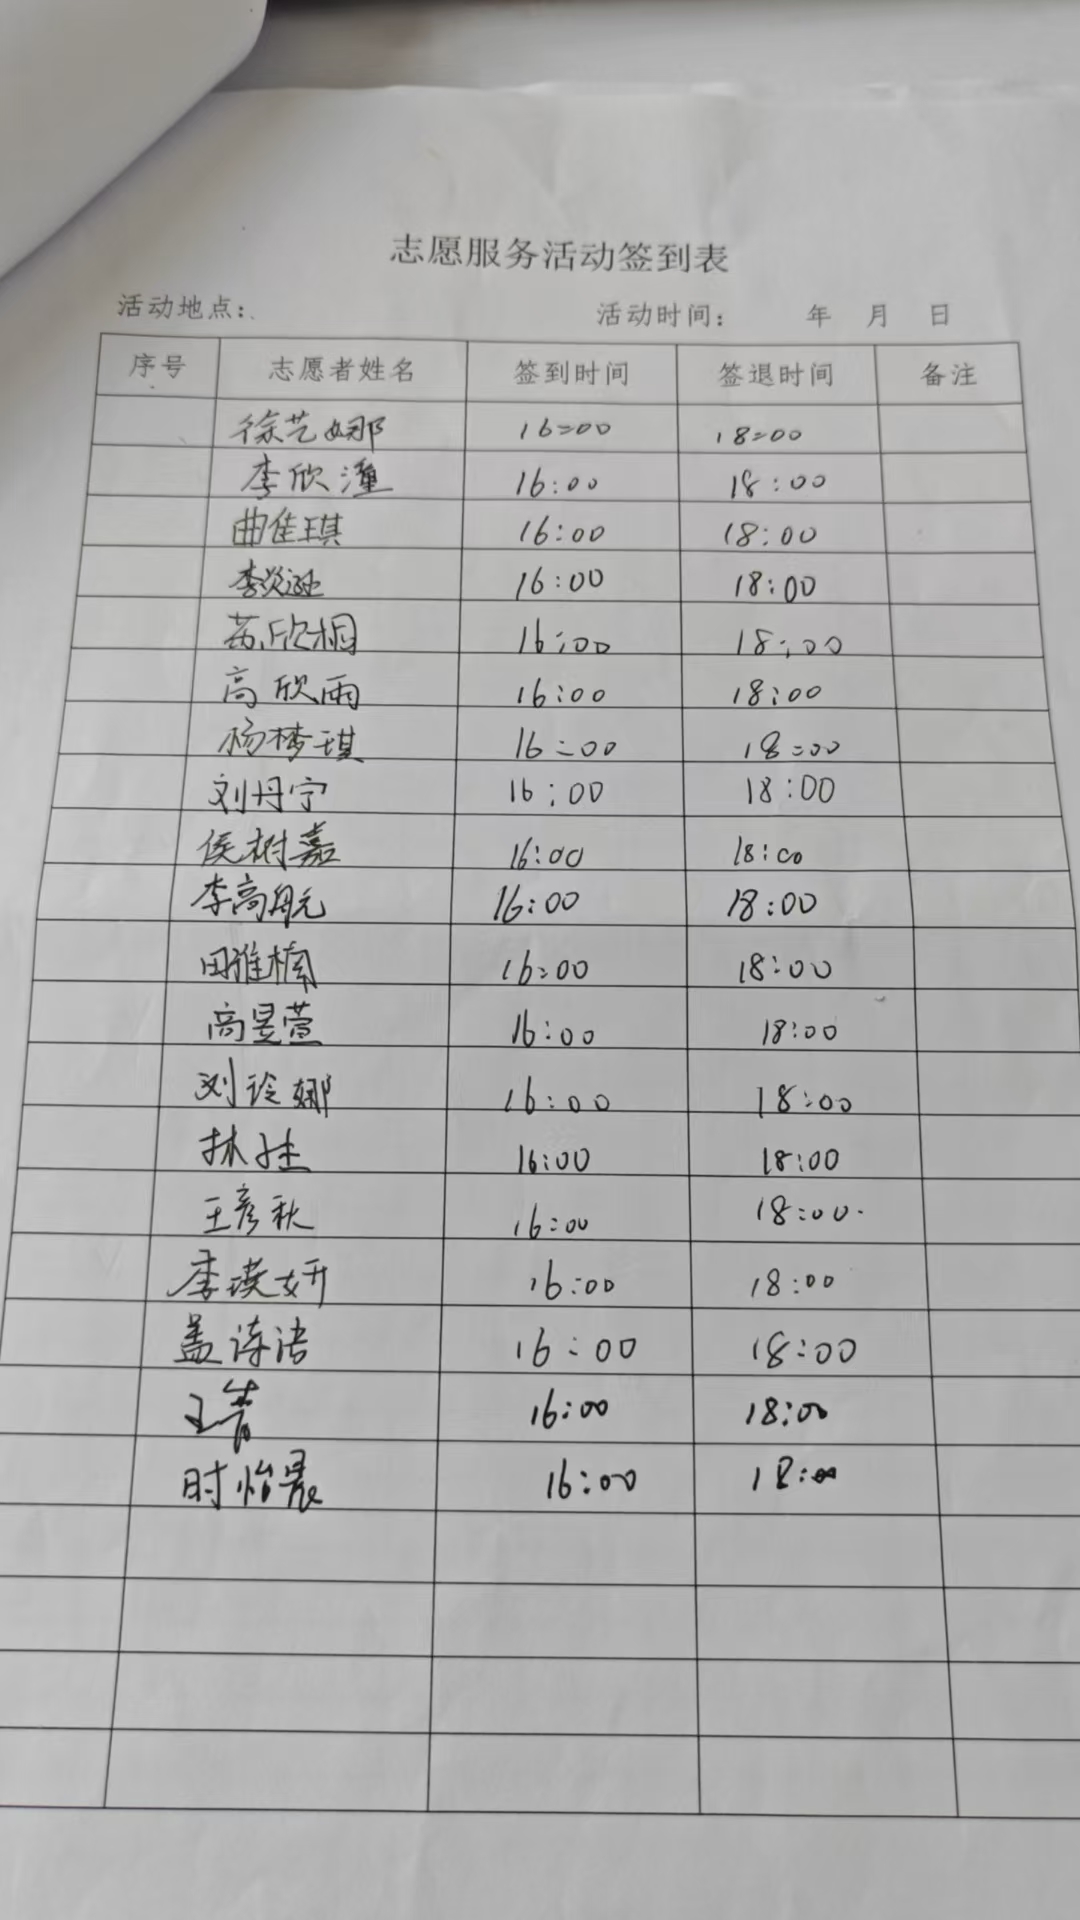 志愿服务活动签到表
活动地点： 活动时间： 年 月 日
序号 志愿者姓名 签到时间 签退时间 备注
徐艺娜 16:00 18:00
李欣潼 16:00 18:00
曲佳琪 16:00 18:00
李炎逊 16:00 18:00
苏欣桐 16:00 18:00
高欣雨 16:00 18:00
杨梦琪 16:00 18:00
刘丹宁 16:00 18:00
侯树嘉 16:00 18:00
李高航 16:00 18:00
田雅楠 16:00 18:00
高昱萱 16:00 18:00
刘玲娜 16:00 18:00
林 16:00 18:00
王彦秋 16:00 18:00
李瑛妍 16:00 18:00
盖诗语 16:00 18:00
王菁 16:00 18:00
时怡晨 16:00 18:00